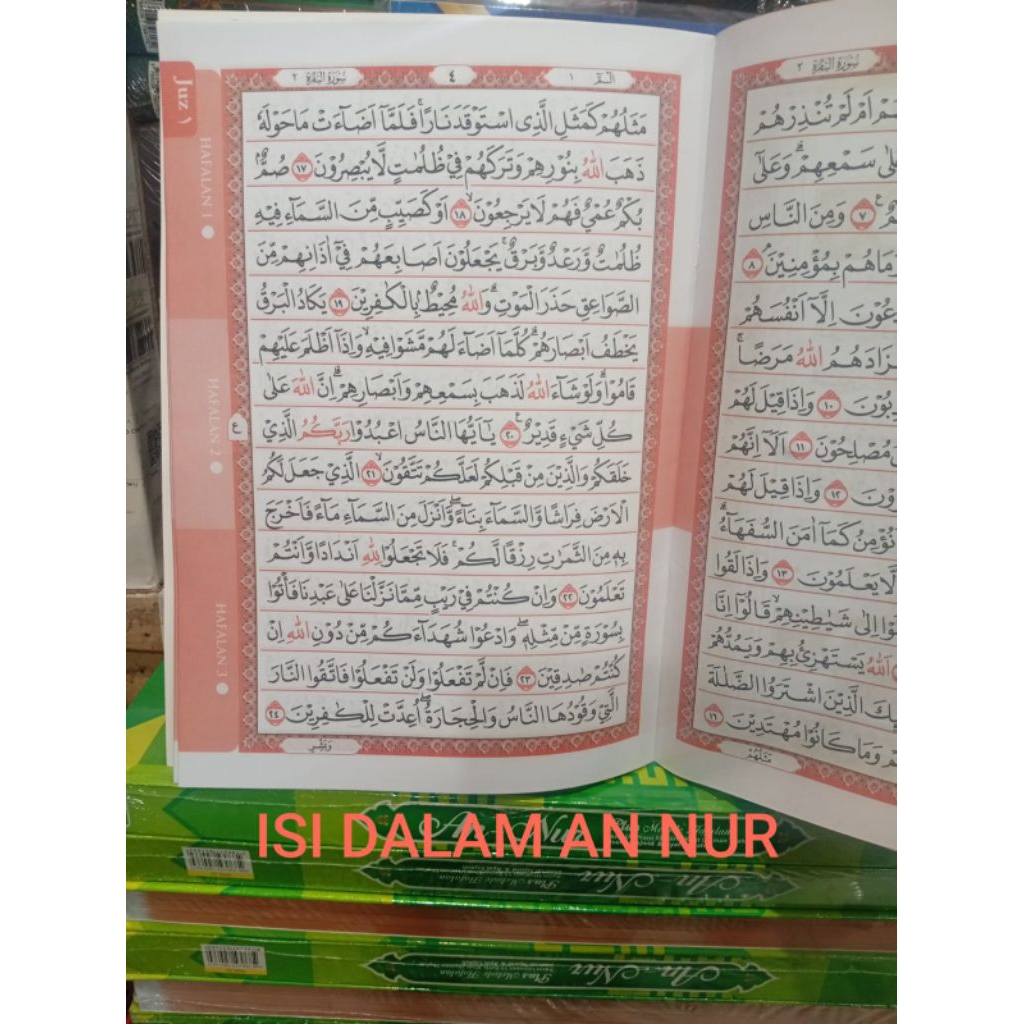 Juz ١
HAFALAN 1
HAFALAN 2
HAFALAN 3
سُورَةُ الْبَقَرَةِ ٢
٤
الٓمّٓ ١
مَثَلُهُمْ كَمَثَلِ الَّذِى اسْتَوْقَدَ نَارًاۚ فَلَمَّآ اَضَاۤءَتْ مَاحَوْلَهٗ
ذَهَبَ اللّٰهُ بِنُوْرِهِمْ وَتَرَكَهُمْ فِيْ ظُلُمٰتٍ لَّا يُبْصِرُوْنَ ١٧ صُمٌّۢ
بُكْمٌ عُمْيٌ فَهُمْ لَا يَرْجِعُوْنَۙ ١٨ اَوْ كَصَيِّبٍ مِّنَ السَّمَاۤءِ فِيْهِ
ظُلُمٰتٌ وَّرَعْدٌ وَّبَرْقٌۚ يَجْعَلُوْنَ اَصَابِعَهُمْ فِيْٓ اٰذَانِهِمْ مِّنَ
الصَّوَاعِقِ حَذَرَ الْمَوْتِۗ وَاللّٰهُ مُحِيْطٌۢ بِالْكٰفِرِيْنَ ١٩ يَكَادُ الْبَرْقُ
يَخْطَفُ اَبْصَارَهُمْۗ كُلَّمَآ اَضَاۤءَ لَهُمْ مَّشَوْا فِيْهِۙ وَاِذَآ اَظْلَمَ عَلَيْهِمْ
قَامُوْاۗ وَلَوْ شَاۤءَ اللّٰهُ لَذَهَبَ بِسَمْعِهِمْ وَاَبْصَارِهِمْۗ اِنَّ اللّٰهَ عَلٰى
كُلِّ شَيْءٍ قَدِيْرٌ ࣖ ٢٠ يٰٓاَيُّهَا النَّاسُ اعْبُدُوْا رَبَّكُمُ الَّذِيْ
ع
خَلَقَكُمْ وَالَّذِيْنَ مِنْ قَبْلِكُمْ لَعَلَّكُمْ تَتَّقُوْنَۙ ٢١ الَّذِيْ جَعَلَ لَكُمُ
الْاَرْضَ فِرَاشًا وَّالسَّمَاۤءَ بِنَاۤءًۖ وَّاَنْزَلَ مِنَ السَّمَاۤءِ مَاۤءً فَاَخْرَجَ
بِهٖ مِنَ الثَّمَرٰتِ رِزْقًا لَّكُمْۚ فَلَا تَجْعَلُوْا لِلّٰهِ اَنْدَادًا وَّاَنْتُمْ
تَعْلَمُوْنَ ٢٢ وَاِنْ كُنْتُمْ فِيْ رَيْبٍ مِّمَّا نَزَّلْنَا عَلٰى عَبْدِنَا فَأْتُوْا
بِسُوْرَةٍ مِّنْ مِّثْلِهٖۖ وَادْعُوْا شُهَدَاۤءَكُمْ مِّنْ دُوْنِ اللّٰهِ اِنْ
كُنْتُمْ صٰدِقِيْنَ ٢٣ فَاِنْ لَّمْ تَفْعَلُوْا وَلَنْ تَفْعَلُوْا فَاتَّقُوا النَّارَ
الَّتِيْ وَقُوْدُهَا النَّاسُ وَالْحِجَارَةُۖ اُعِدَّتْ لِلْكٰفِرِيْنَ ٢٤
وَبَشِّرِ
سُورَةُ الْبَقَرَةِ ٢
اَمْ لَمْ تُنْذِرْهُمْ
سَمْعِهِمْۗ وَعَلٰٓى
٧ وَمِنَ النَّاسِ
هُمْ بِمُؤْمِنِيْنَۘ ٨
اِلَّآ اَنْفُسَهُمْ
اللّٰهُ مَرَضًاۚ
١٠ وَاِذَا قِيْلَ لَهُمْ
مُصْلِحُوْنَ ١١ اَلَآ اِنَّهُمْ
١٢ وَاِذَا قِيْلَ لَهُمْ
كَمَآ اٰمَنَ السُّفَهَاۤءُۗ
لَّا يَعْلَمُوْنَ ١٣ وَاِذَا لَقُوا
اِلٰى شَيٰطِيْنِهِمْۙ قَالُوْٓا اِنَّا
اَللّٰهُ يَسْتَهْزِئُ بِهِمْ وَيَمُدُّهُمْ
الَّذِيْنَ اشْتَرَوُا الضَّلٰلَةَ
وَمَا كَانُوْا مُهْتَدِيْنَ ١٦
مَثَلُهُمْ
ISI DALAM AN NUR
An-Nur
Plus Metode Hafalan
An-Nur
Plus Metode Hafalan
An-Nur
Plus Metode Hafalan